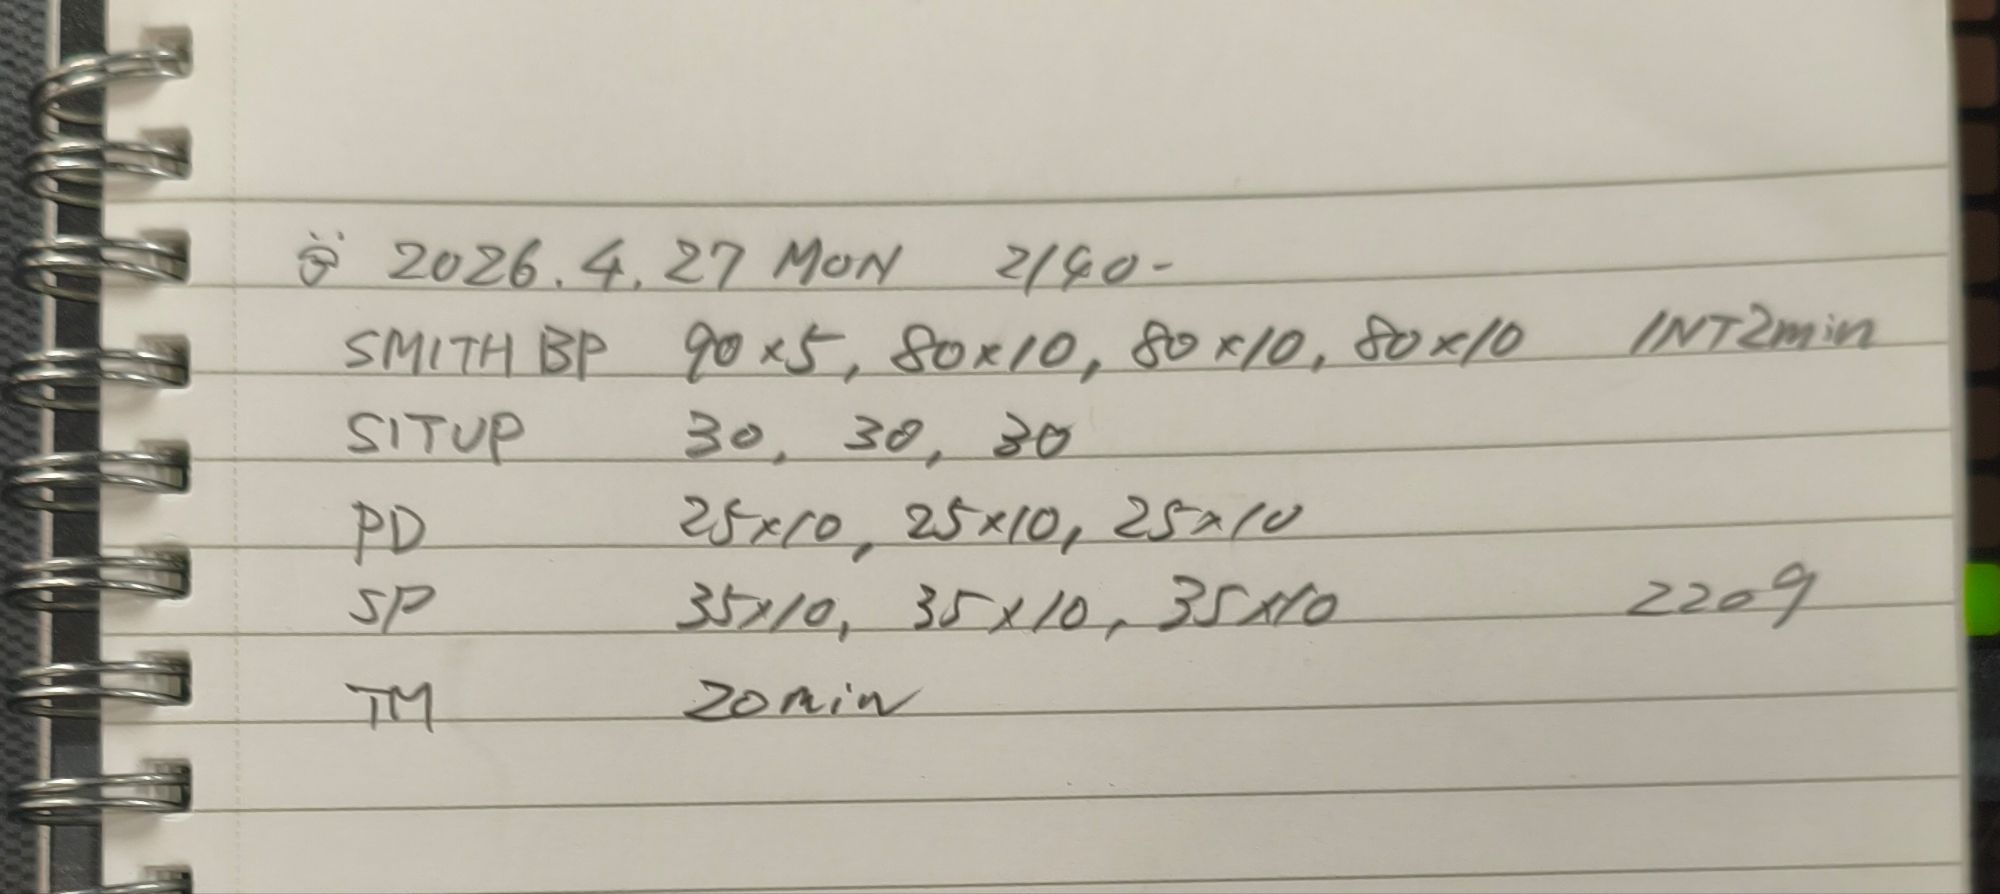 2026.4.27 MON 2140-
SMITH BP 90×5, 80×10, 80×10, 80×10 INT2min
SITUP 30, 30, 30
PD 25×10, 25×10, 25×10
SP 35×10, 35×10, 35×10 2209
TM 20min